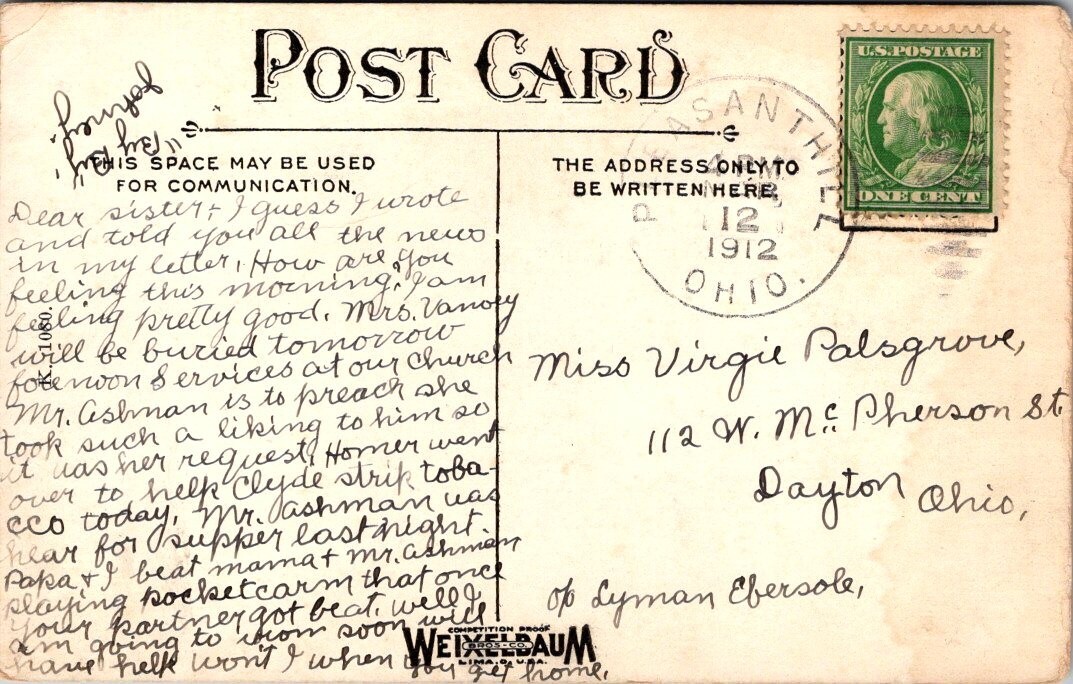 POST CARD
U.S. POSTAGE
ONE CENT
PLEASANT HILL
4 PM
MAR
12
1912
OHIO.
"By By"
Johney
THIS SPACE MAY BE USED
FOR COMMUNICATION.
THE ADDRESS ONLY TO
BE WRITTEN HERE.
K. 1080.
Dear sister:- I guess I wrote
and told you all the news
in my letter. How are you
feeling this morning? I am
feeling pretty good. Mrs. Vanoey
will be buried tomorrow
forenoon Services at our church
Mr. Ashman is to preach she
took such a liking to him so
it was her request. Homer went
over to help Clyde strip toba-
cco today. Mr. Ashman was
hear for supper last night.
Papa & I beat mama & Mr. Ashman
playing pocket carm that once
your partner got beat. well I
am going to soon will
have help won't I when you get home.
Miss Virgie Palsgrove,
112 W. Mc Pherson St.
Dayton Ohio,
c/o Lyman Ebersole,
COMPETITION PROOF
WEIXELBAUM
BROS. CO.
LIMA, O. U.S.A.